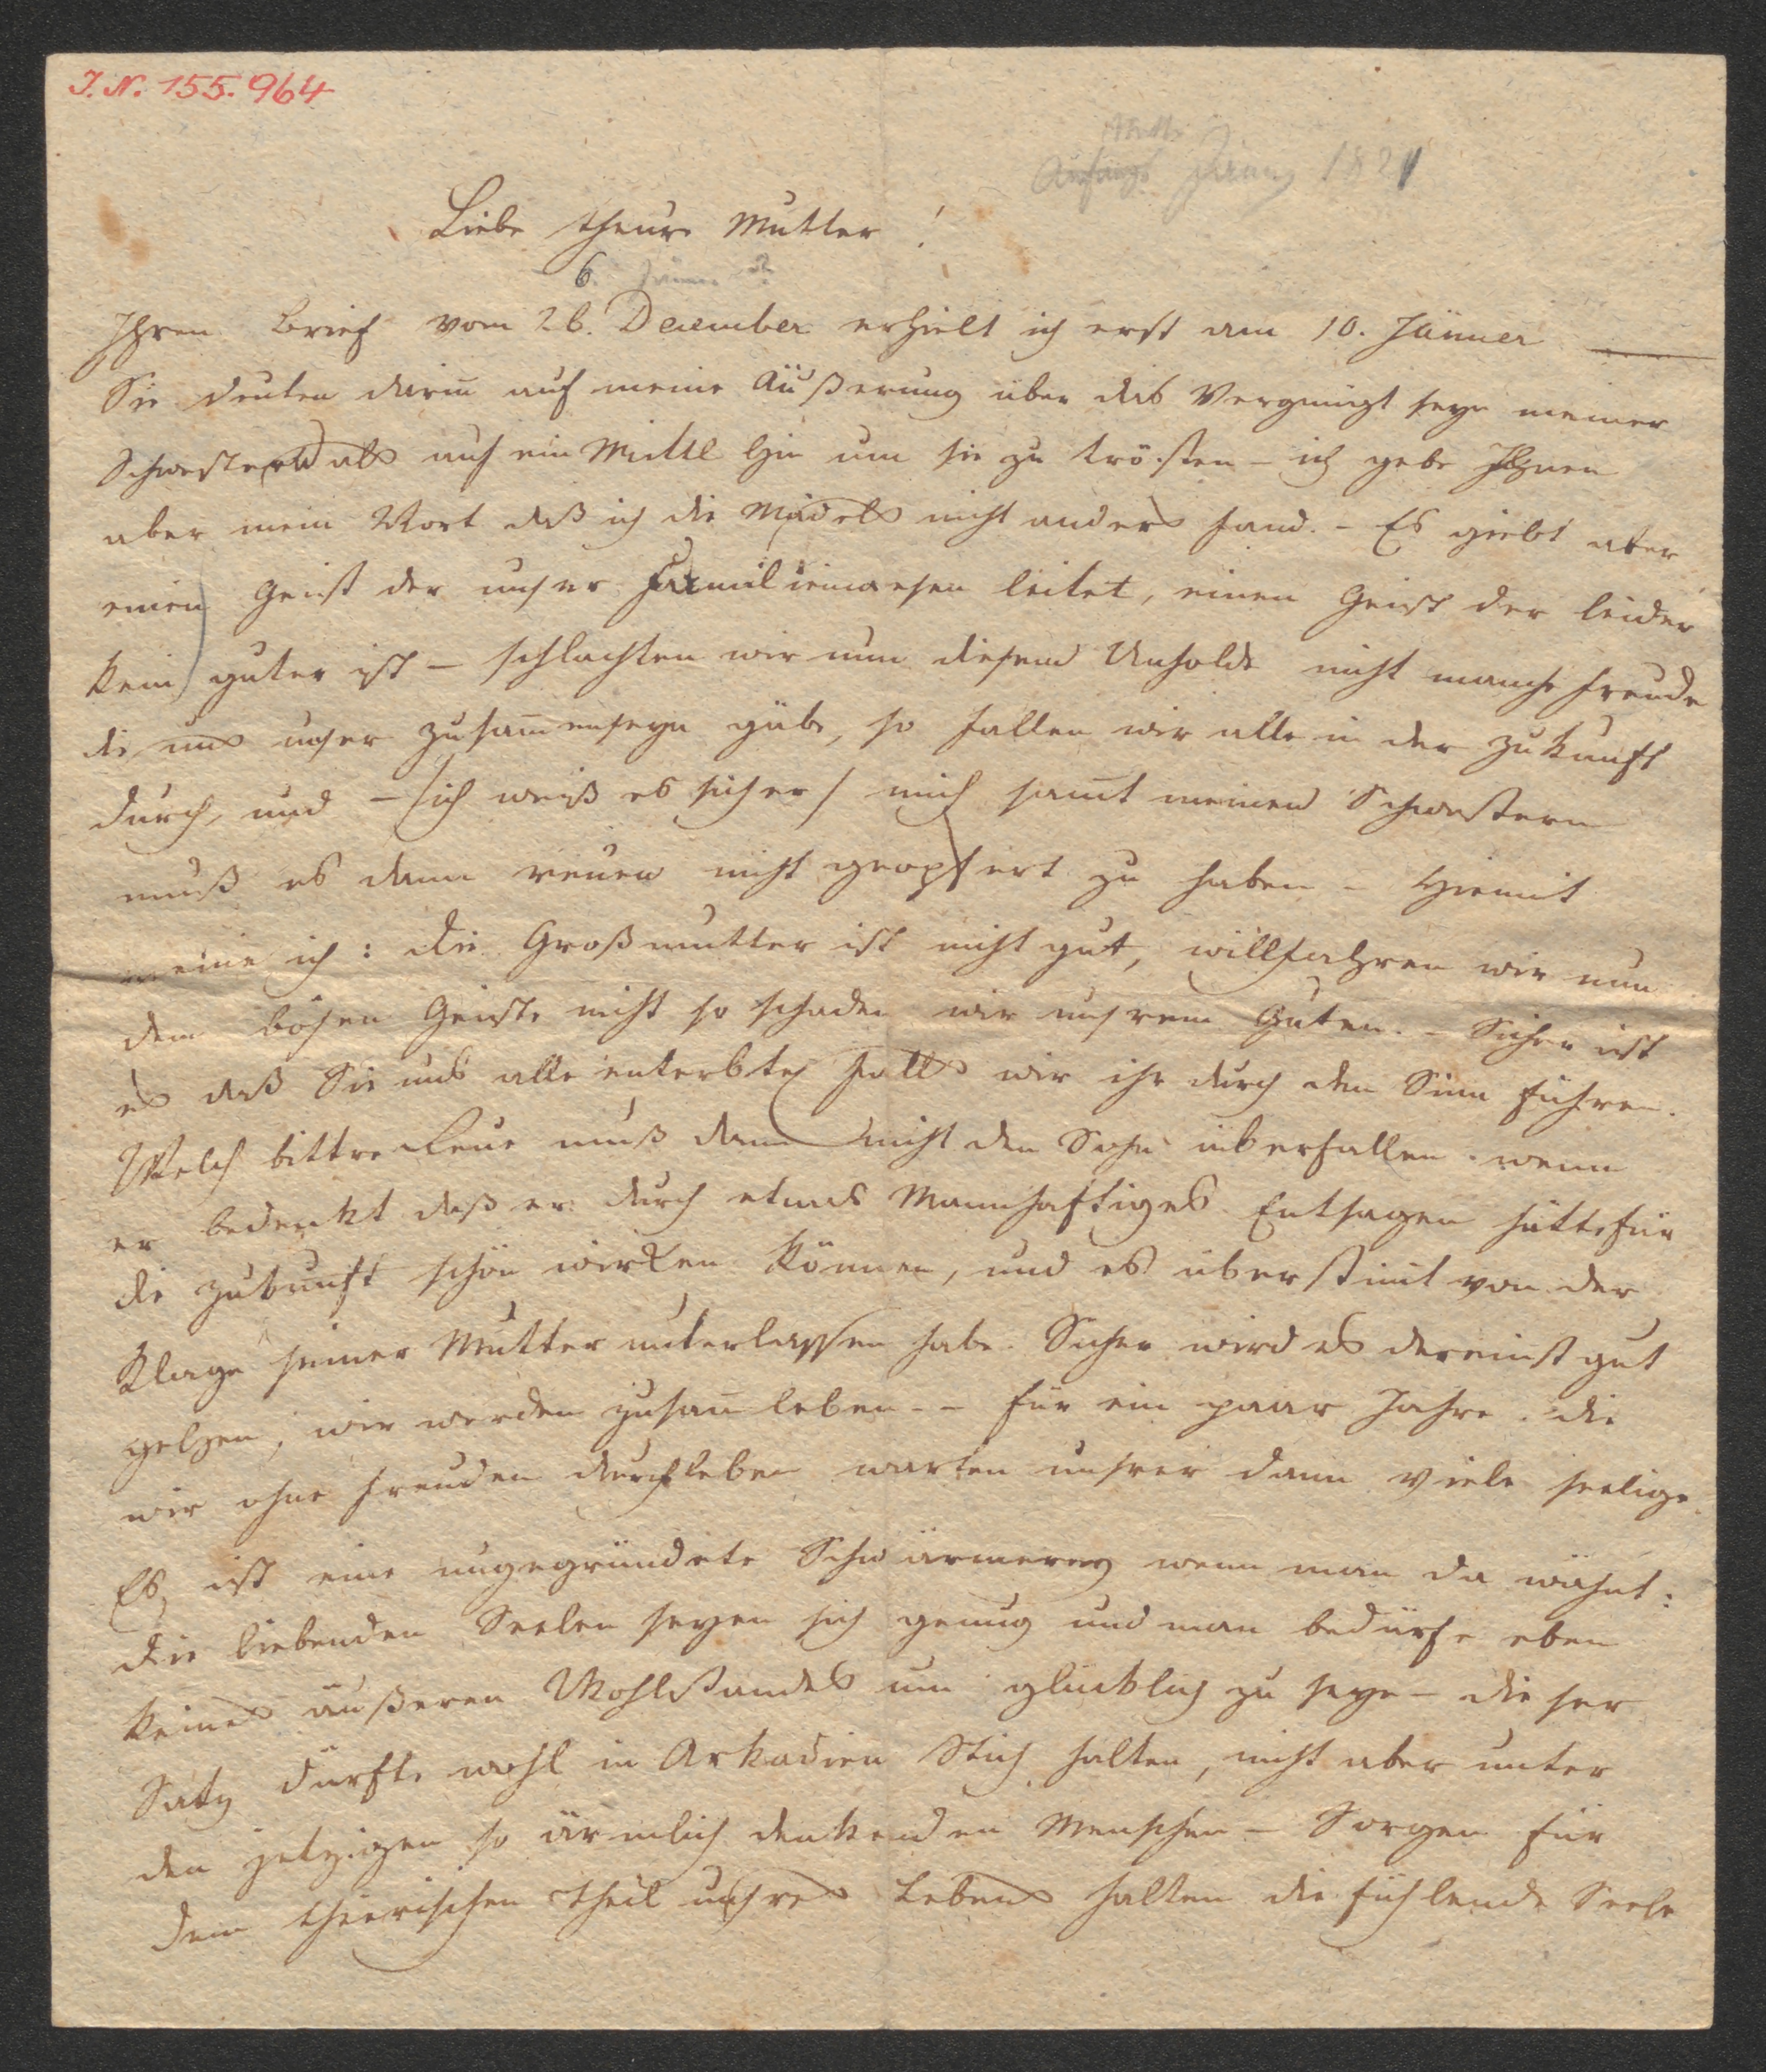 J. N. 155.964
Mitte
Anfangs Jänner 1821
Liebe theure Mutter!
6. Jänner ?
Ihren Brief vom 26. December erhielt ich erst am 10. Jänner —
Sie deuten darin auf meine Äußerung über das Vergnügt seyn meiner
Schwestern als auf ein Mittel hin um sie zu trösten – ich gebe Ihnen
aber mein Wort daß ich die Mädels nicht anders fand. – Es giebt aber
einen Geist der unser Familienwesen leitet, einen Geist der leider
kein guter ist – schlachten wir nun diesem Unholde nicht manche Freude
die uns unser Zusam̄enseyn gäbe, so fallen wir alle in der Zukunft
durch, und – /ich weiß es sicher/ mich samt meinen Schwestern
muß es dann reuen nicht geopfert zu haben – Hiemit
meine ich: die Großmutter ist nicht gut, willfahren wir nun
dem bösen Geiste nicht so schaden wir unsrem Guten. – Sicher ist
es daß Sie uns alle enterbte falls wir ihr durch den Sinn führen.
Welch bittre Reue muß dann nicht den Sohn überfallen wenn
er bedenkt daß er durch etwas Mannhaftiges Entsagen hätte für
die Zukunft schön wirken können, und es überstimt von der
Klage seiner Mutter unterlassen habe. Sicher wird es dereinst gut
gehen, wir werden zusam̄ leben – – für ein paar Jahre die
wir ohne Freuden durchleben warten unsrer dann viele seelige.
Es ist eine ungegründete Schwärmerey wenn man da wähnt:
die liebenden Seelen seyen sich genug und man bedürfe eben
keines äußeren Wohlstandes um glücklich zu seyn – dieser
Satz dürfte wohl in Arkadien Stich halten, nicht aber unter
den jetzigen so ärmlich denkenden Menschen – Sorgen für
den thierischen Theil unsres Lebens halten die fühlende Seele